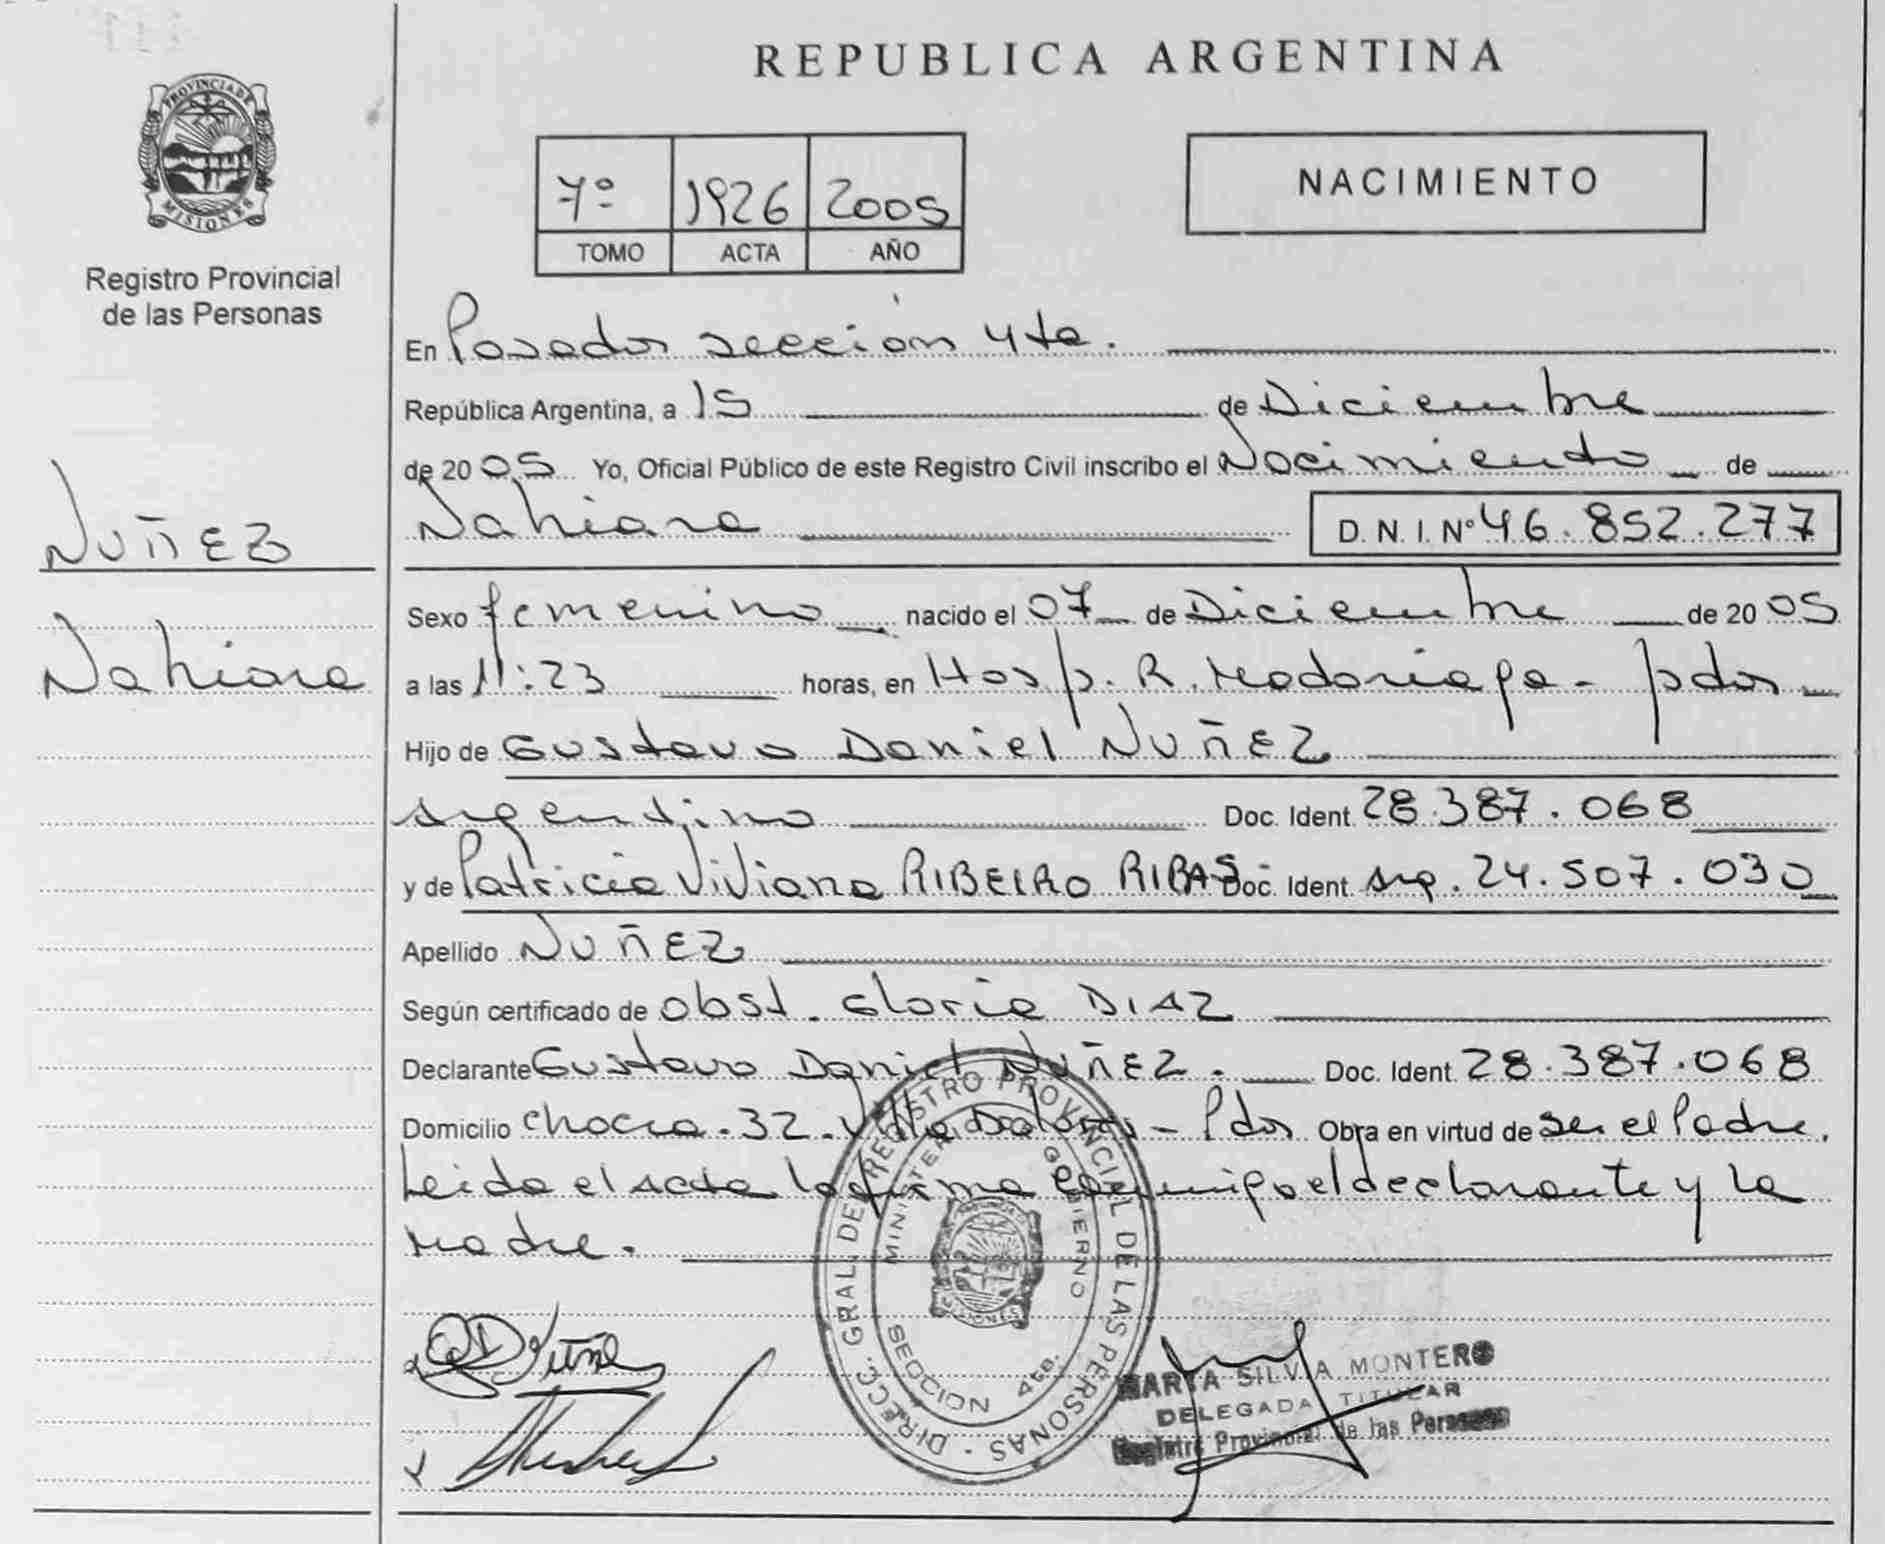 REPUBLICA ARGENTINA
PROVINCIA DE MISIONES
Registro Provincial
de las Personas
7º 1926 2005
TOMO ACTA AÑO
NACIMIENTO
En Posadas sección 4ta.
República Argentina, a 15 de Diciembre
de 2005 Yo, Oficial Público de este Registro Civil inscribo el Nacimiento de
Nahiara D. N. I. Nº 46.852.277
NUÑEZ
Nahiara
Sexo femenino nacido el 07 de Diciembre de 2005
a las 11:23 horas, en Hosp. R. Madariaga - Pdas
Hijo de Gustavo Daniel NUÑEZ
argentino Doc. Ident. 28.387.068
y de Patricia Viviana RIBEIRO RIBAS Doc. Ident. arg. 24.507.030
Apellido NUÑEZ
Según certificado de obst. Gloria DIAZ
Declarante Gustavo Daniel NUÑEZ. Doc. Ident. 28.387.068
Domicilio chacra. 32. Villa Dolores - Pdas Obra en virtud de ser el Padre.
Leida el acta la firma conmigo el declarante y la
madre.
DIRECC. GRAL. DE REGISTRO PROVINCIAL DE LAS PERSONAS
MINISTERIO GOBIERNO
SECCION 4ta.
MARTA SILVIA MONTERO
DELEGADA TITULAR
Registro Provincial de las Personas